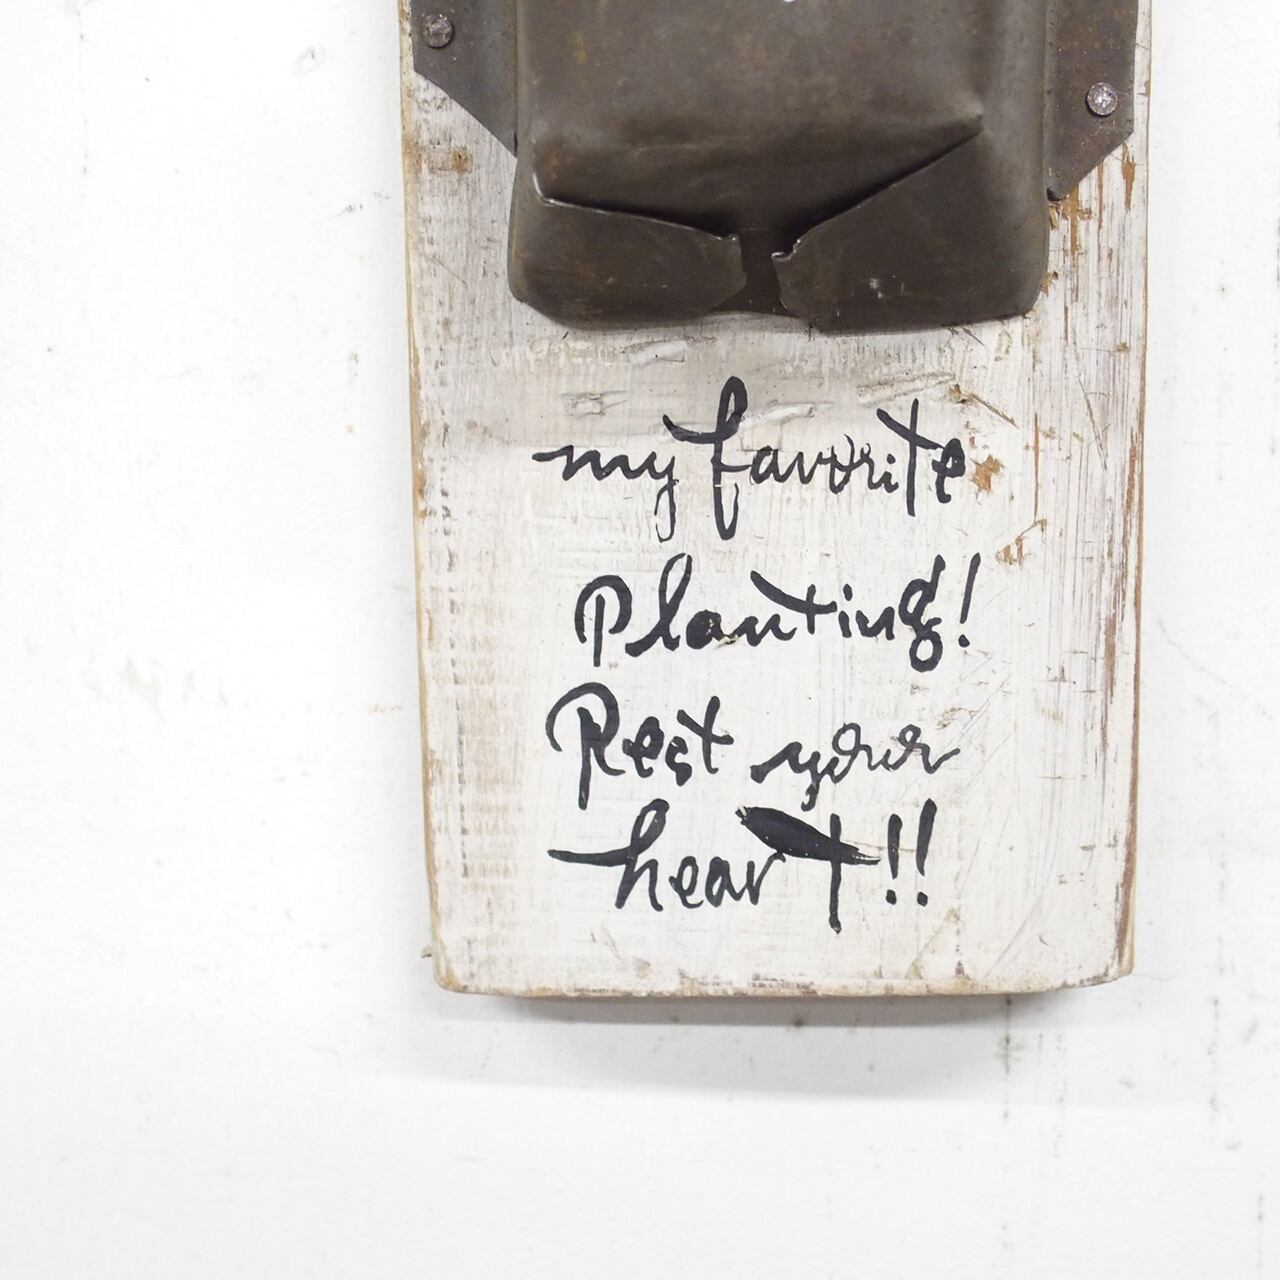 my favorite
Planting!
Rest your
heart!!